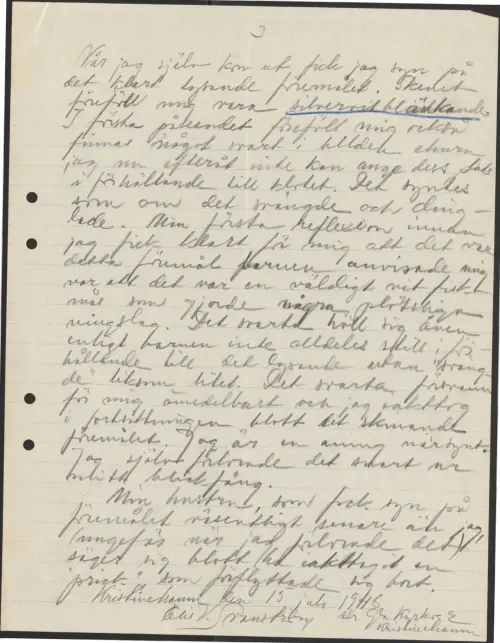 3
När jag själv kom ut fick jag syn på
det klart lysande föremålet. Skenet
föreföll mig vara silvervitbländande.
I första påseendet föreföll mig också
finnas något svart i bilden ehuru
jag nu efteråt inte kan ange dess läge
i förhållande till klotet. Det syntes
som om det svängde och ding-
lade. Min första reflexion innan
jag fick klart för mig att det var
detta föremål barnen anvisade mig
var att det var en väldigt vit fisk-
mås som gjorde några plötsliga
vingslag. Det svarta höll sig även
enligt barnen inte alldeles still i för-
hållande till det lysande utan "sväng-
de" liksom litet. Det svarta försvann
för mig omedelbart och jag iakttog
i fortsättningen blott det skinande
föremålet. Jag är en aning närsynt.
Jag själv förlorade det snart ur
mitt blickfång.
Min hustru, som fick syn på
föremålet väsentligt senare än jag,
ungefär när jag förlorade det,
säger sig blott ha iakttagit en
"prick" som förflyttade sig bort.
Kristinehamn den 13 juli 1946
Kristinehamn